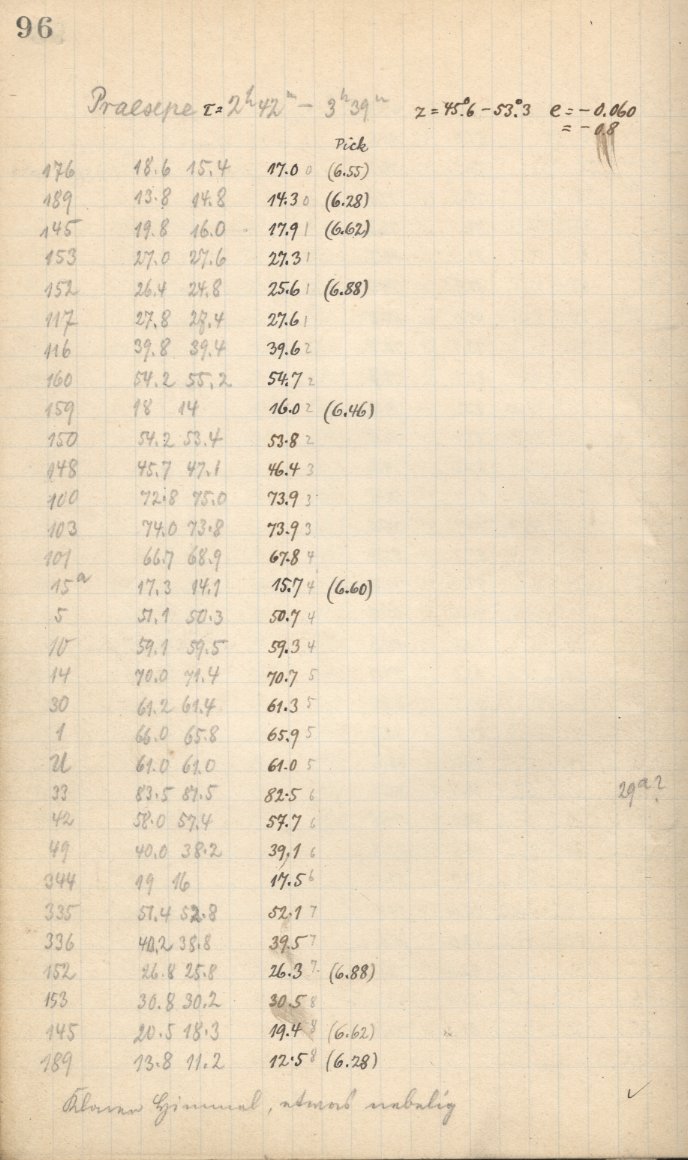 96
Praesepe τ = 2ʰ42ᵐ – 3ʰ39ᵐ z = 45°.6 – 53°.3 e = – 0.060
= – 0.8
Pick
176 18.6 15.4 17.0 0 (6.55)
189 13.8 14.8 14.3 0 (6.28)
145 19.8 16.0 17.9 1 (6.62)
153 27.0 27.6 27.3 1
152 26.4 24.8 25.6 1 (6.88)
117 27.8 27.4 27.6 1
116 39.8 39.4 39.6 2
160 54.2 55.2 54.7 2
159 18 14 16.0 2 (6.46)
150 54.2 53.4 53.8 2
148 45.7 47.1 46.4 3
100 72.8 75.0 73.9 3
103 74.0 73.8 73.9 3
101 66.7 68.9 67.8 4
15ᵃ 17.3 14.1 15.7 4 (6.60)
5 51.1 50.3 50.7 4
10 59.1 59.5 59.3 4
14 70.0 71.4 70.7 5
30 61.2 61.4 61.3 5
1 66.0 65.8 65.9 5
U 61.0 61.0 61.0 5
33 83.5 81.5 82.5 6
29ᵃ?
42 58.0 57.4 57.7 6
49 40.0 38.2 39.1 6
344 19 16 17.5 6
335 51.4 52.8 52.1 7
336 40.2 38.8 39.5 7
152 26.8 25.8 26.3 7 (6.88)
153 30.8 30.2 30.5 8
145 20.5 18.3 19.4 8 (6.62)
189 13.8 11.2 12.5 8 (6.28)
Klarer Himmel, etwas nebelig